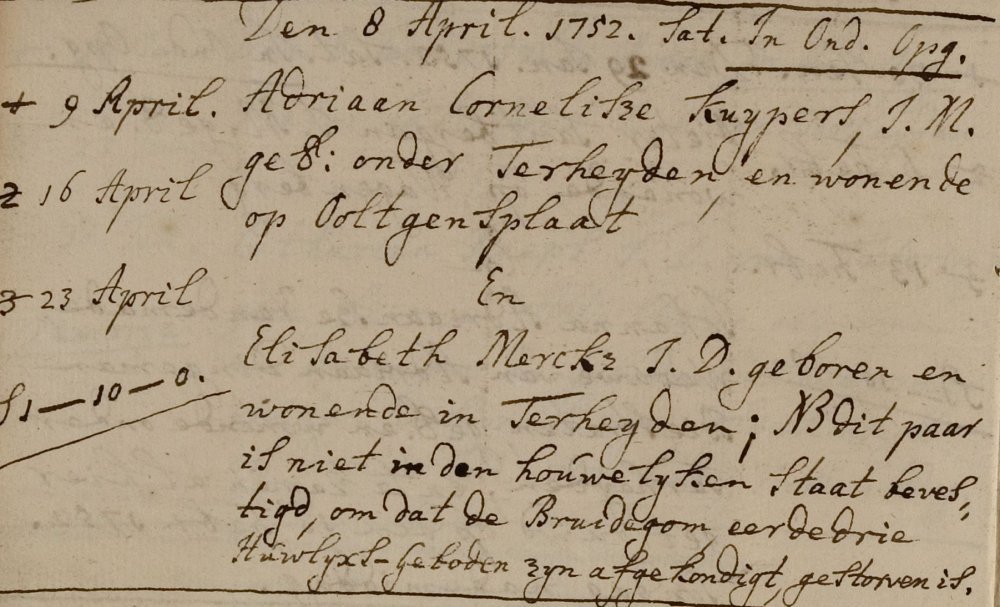 Den 8 April. 1752. Sat. In Ond. Opg.
+ 9 April. Adriaan Cornelisze Kuypers, J. M.
geb: onder Terheyden, en wonende
2 16 April
op Ooltgensplaat
3 23 April
En
Elisabeth Merckx J. D. geboren en
f 1—10—0.
wonende in Terheyden; NB dit paar
is niet in den houwelyken staat beves-
tigd, om dat de Bruidegom, eer de drie
Huwlyxs-Geboden zyn afgekondigt, gestorven is.